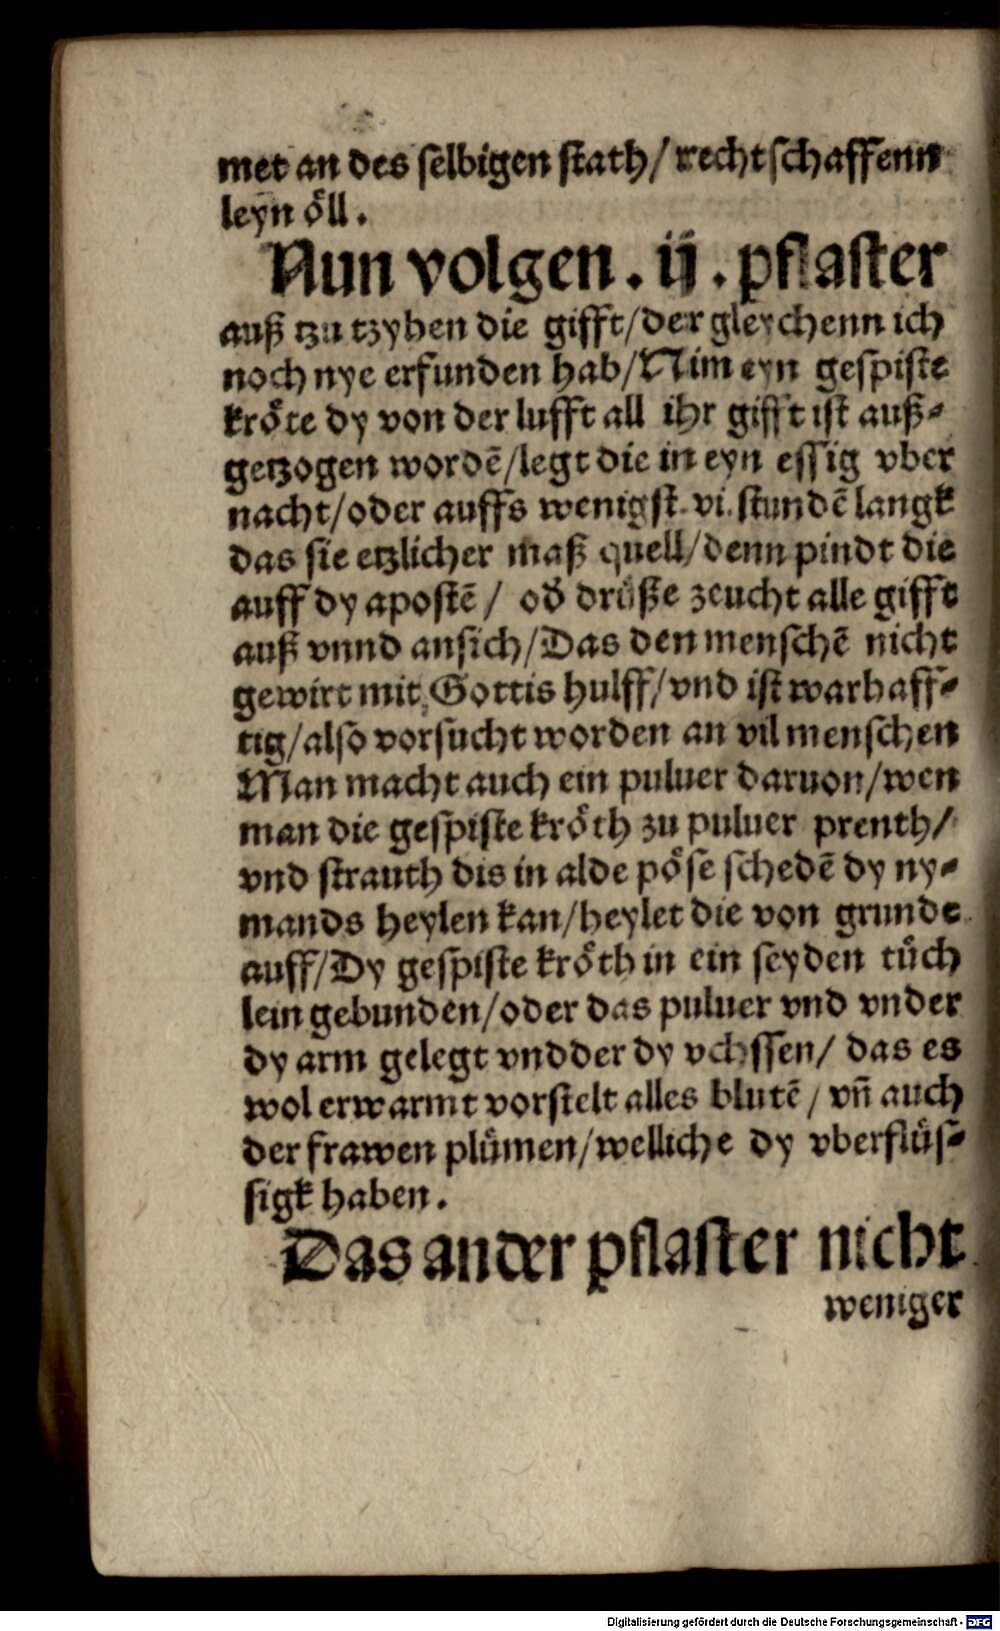 met an des selbigen stath/ rechtschaffenn
leyn oͤll.
Nun volgen. ij. pflaster
auß tzu tzyhen die gifft/der gleychenn ich
noch nye erfunden hab/Nim eyn gespiste
kroͤte dy von der lufft all ihr gifft ist auß-
getzogen wordē/legt die in eyn essig vber
nacht/oder auffs wenigst. vi. stundē langk
das sie etzlicher maß quell/denn pindt die
auff dy apostē/ od̄ druͤße zeucht alle gifft
auß vnnd ansich/Das den menschē nicht
gewirt mit Gottis hulff/vnd ist warhaff-
tig/also vorsucht worden an vil menschen
Man macht auch ein puluer daruon/wen
man die gespiste kroͤth zu puluer prenth/
vnd strauth dis in alde poͤse schedē dy ny-
mands heylen kan/heylet die von grunde
auff/Dy gespiste kroͤth in ein seyden tuͤch
lein gebunden/oder das puluer vnd vnder
dy arm gelegt vnd der dy vchssen/ das es
wol erwarmt vorstelt alles blutē/ vn̄ auch
der frawen pluͤmen/welliche dy vberfluͤs-
sigk haben.
Das ander pflaster nicht
weniger
Digitalisierung gefördert durch die Deutsche Forschungsgemeinschaft - DFG